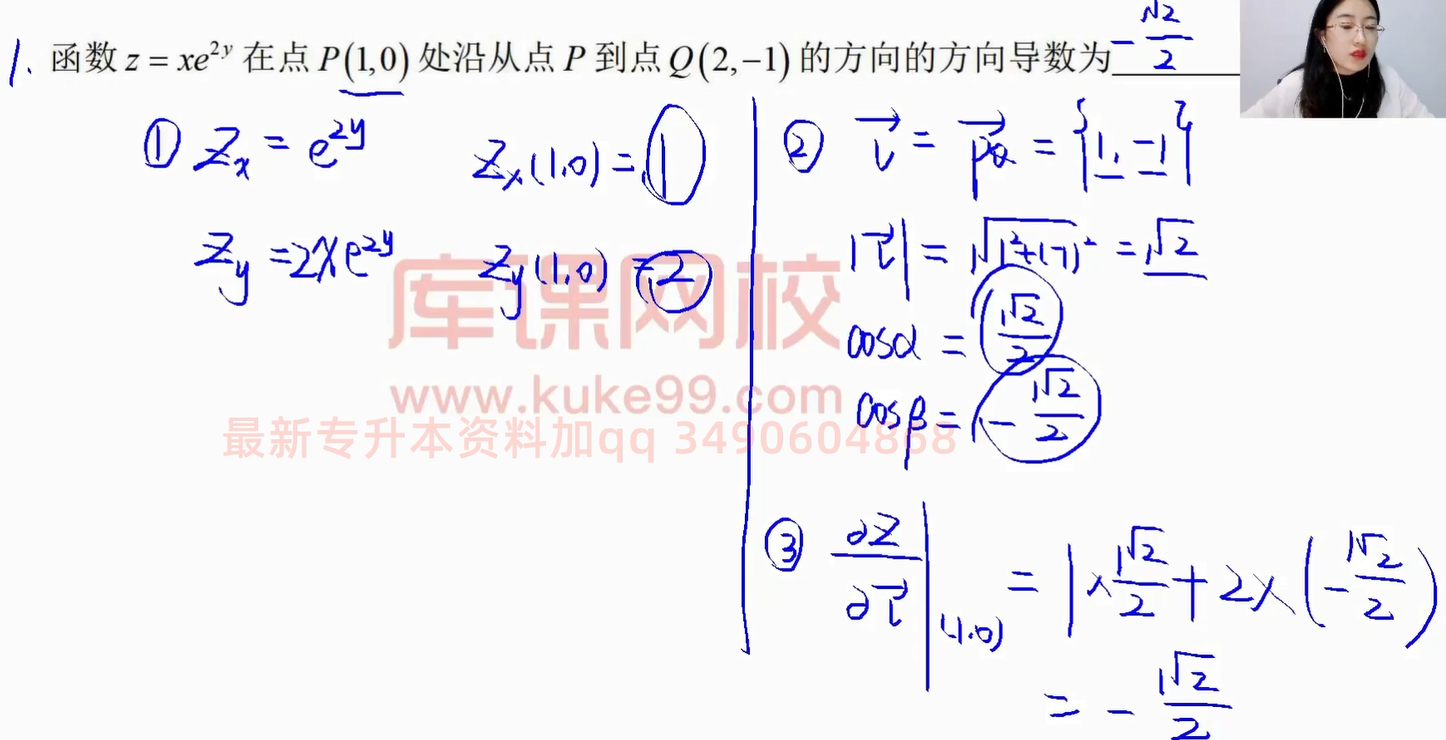 1. 函数 z = xe^{2y} 在点 P(1,0) 处沿从点 P 到点 Q(2,-1) 的方向的方向导数为 -√2/2
① Z_x = e^{2y}    Z_x(1,0) = 1
Z_y = 2xe^{2y}    Z_y(1,0) = 2
② \vec{l} = \vec{PQ} = {1, -1}
|\vec{l}| = √(1²+(-1)²) = √2
cosα = √2/2
cosβ = -√2/2
③ ∂Z/∂\vec{l} |_{(1,0)} = 1×√2/2 + 2×(-√2/2)
= -√2/2
库课网校
www.kuke99.com
最新专升本资料加qq 3490604868